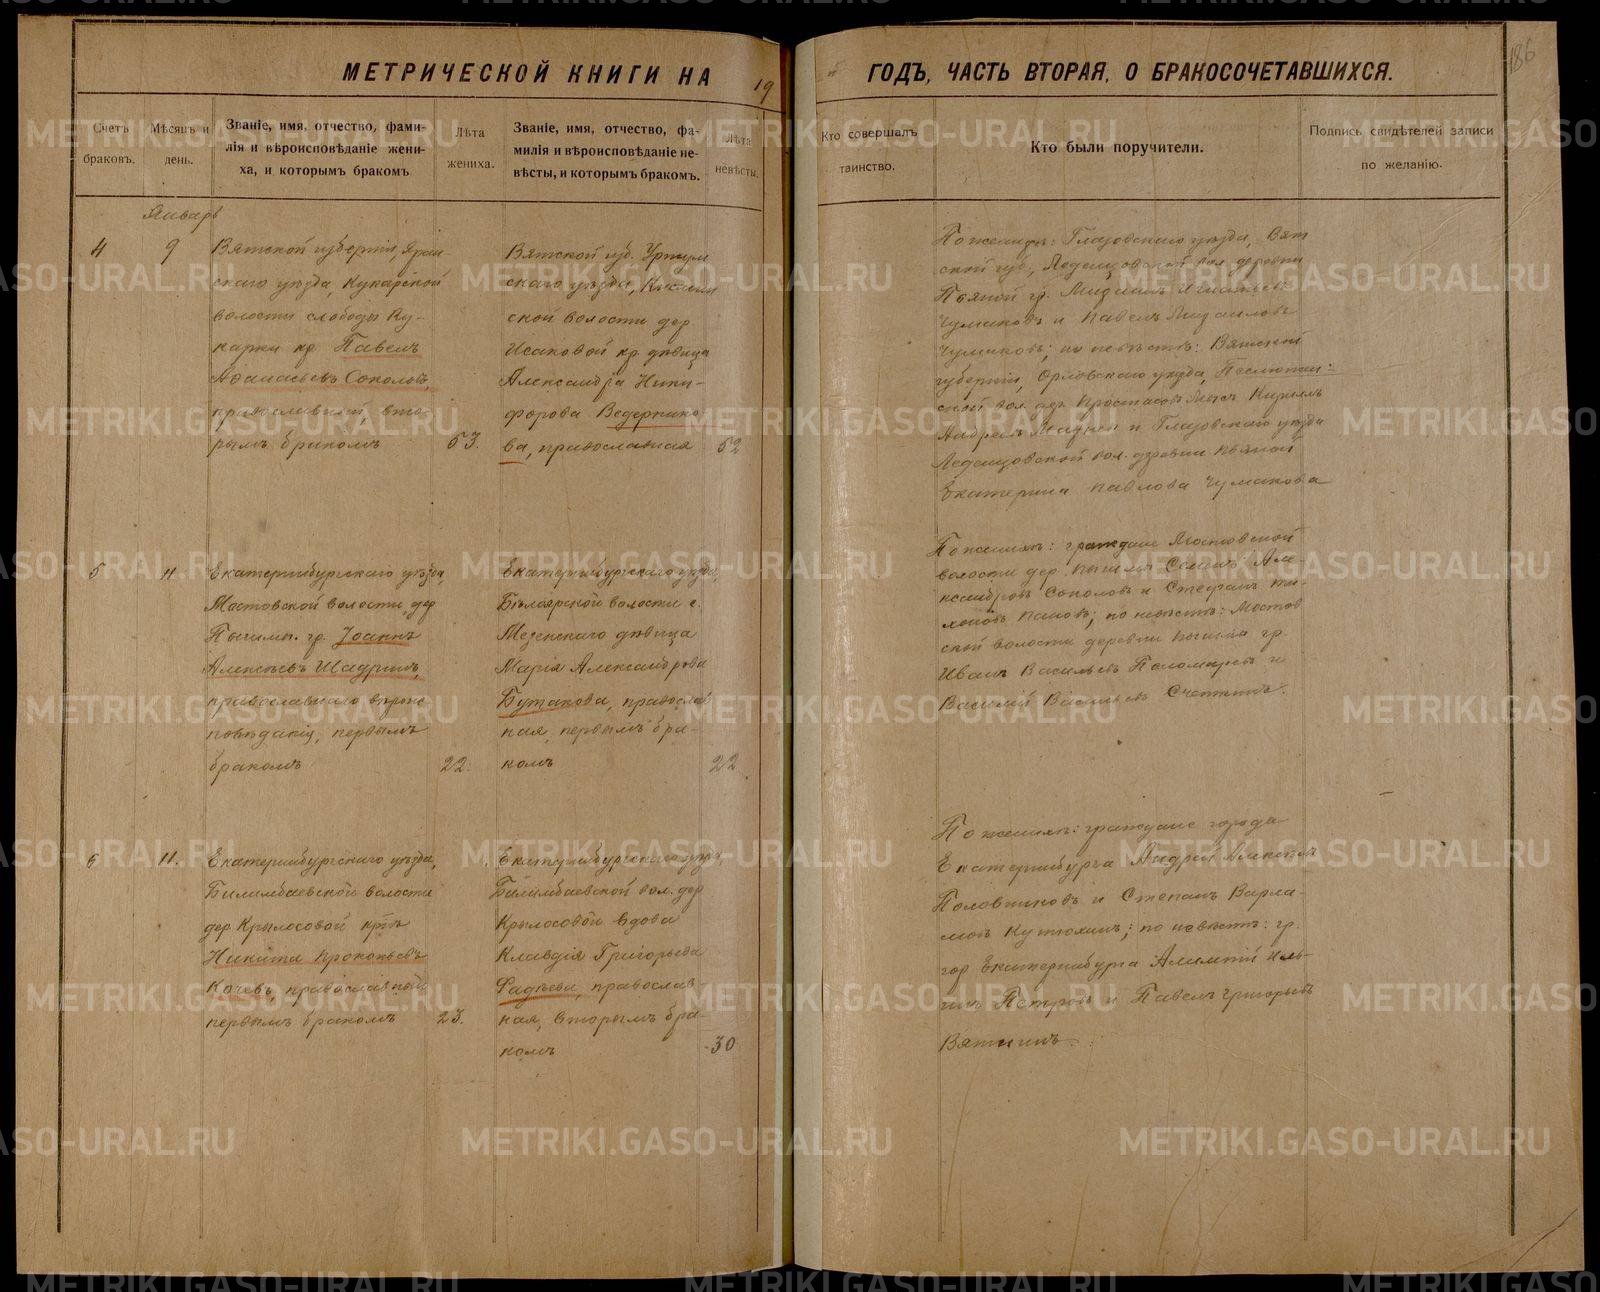 МЕТРИЧЕСКОЙ КНИГИ НА 19
ГОДЪ, ЧАСТЬ ВТОРАЯ, О БРАКОСОЧЕТАВШИХСЯ.
186
Счетъ браковъ.
Мѣсяцъ и день.
Званіе, имя, отчество, фами-
лія и вѣроисповѣданіе жени-
ха, и которымъ бракомъ
Лѣта жениха.
Званіе, имя, отчество, фа-
милія и вѣроисповѣданіе не-
вѣсты, и которымъ бракомъ.
Лѣта невѣсты.
Кто совершалъ таинство.
Кто были поручители.
Подпись свидѣтелей записи
по желанію.
Январь
4
9
Вятской губерніи, Яран-
скаго уѣзда, Кукарской
волости слободы Ку-
карки кр. Павелъ
Аѳанасьевъ Соколовъ,
православный, вто-
рымъ бракомъ
53.
Вятской губ. Уржум
скаго уѣзда,
ской волости дер
Исаковой кр. дѣвица
Александра Ники-
форова Ведернико
ва, православная
52
По женихѣ: Глазовскаго уѣзда, Вят
ской губ., вол. деревни
гр. Михаилъ Игнатьевъ
Чумаковъ и Павелъ Михаиловъ
Чумаковъ; по невѣстѣ: Вятской
губерніи, Орловскаго уѣзда,
ской вол. дер. Кириллъ
и Глазовскаго уѣзда
вол. деревни
Екатерина Павлова Чумакова
5
11
Екатеринбургскаго уѣзда,
Мостовской волости, дер
Пышмы. гр. Іоаннъ
Алексѣевъ Шадринъ,
православнаго вѣроис
повѣданія, первымъ
бракомъ
22.
Екатеринбургскаго уѣзда,
Бѣлоярской волости с.
Мезенскаго дѣвица
Марія Александрова
Бутакова, православ
ная, первымъ бра-
комъ
22
По женихѣ: граждане Мостовской
волости дер. Пышмы Семенъ Але
ксандровъ Соколовъ и Стефанъ Ти-
хоновъ; по невѣстѣ: Мостов
ской волости деревни Пышма гр.
Иванъ Васильевъ Пономаревъ и
Василій Васильевъ
6
11.
Екатеринбургскаго уѣзда,
Билимбаевской волости
дер Крылосовой кр-нъ
Никита Прокопьевъ
Качевъ, православный
первымъ бракомъ
23.
Екатеринбургскаго уѣзда,
Билимбаевской вол. дер
Крылосовой вдова
Клавдія Григорьева
Фадѣева, православ-
ная, вторымъ бра-
комъ
30
По женихѣ: граждане города
Екатеринбурга Андрей Алексѣевъ
Половниковъ и Степанъ Варла-
мовъ Кутюхинъ; по невѣстѣ: гр.
гор Екатеринбурга Алимпій Иль-
инъ Петровъ и Павелъ Григорьевъ
Вяткинъ.
METRIKI.GASO-URAL.RU